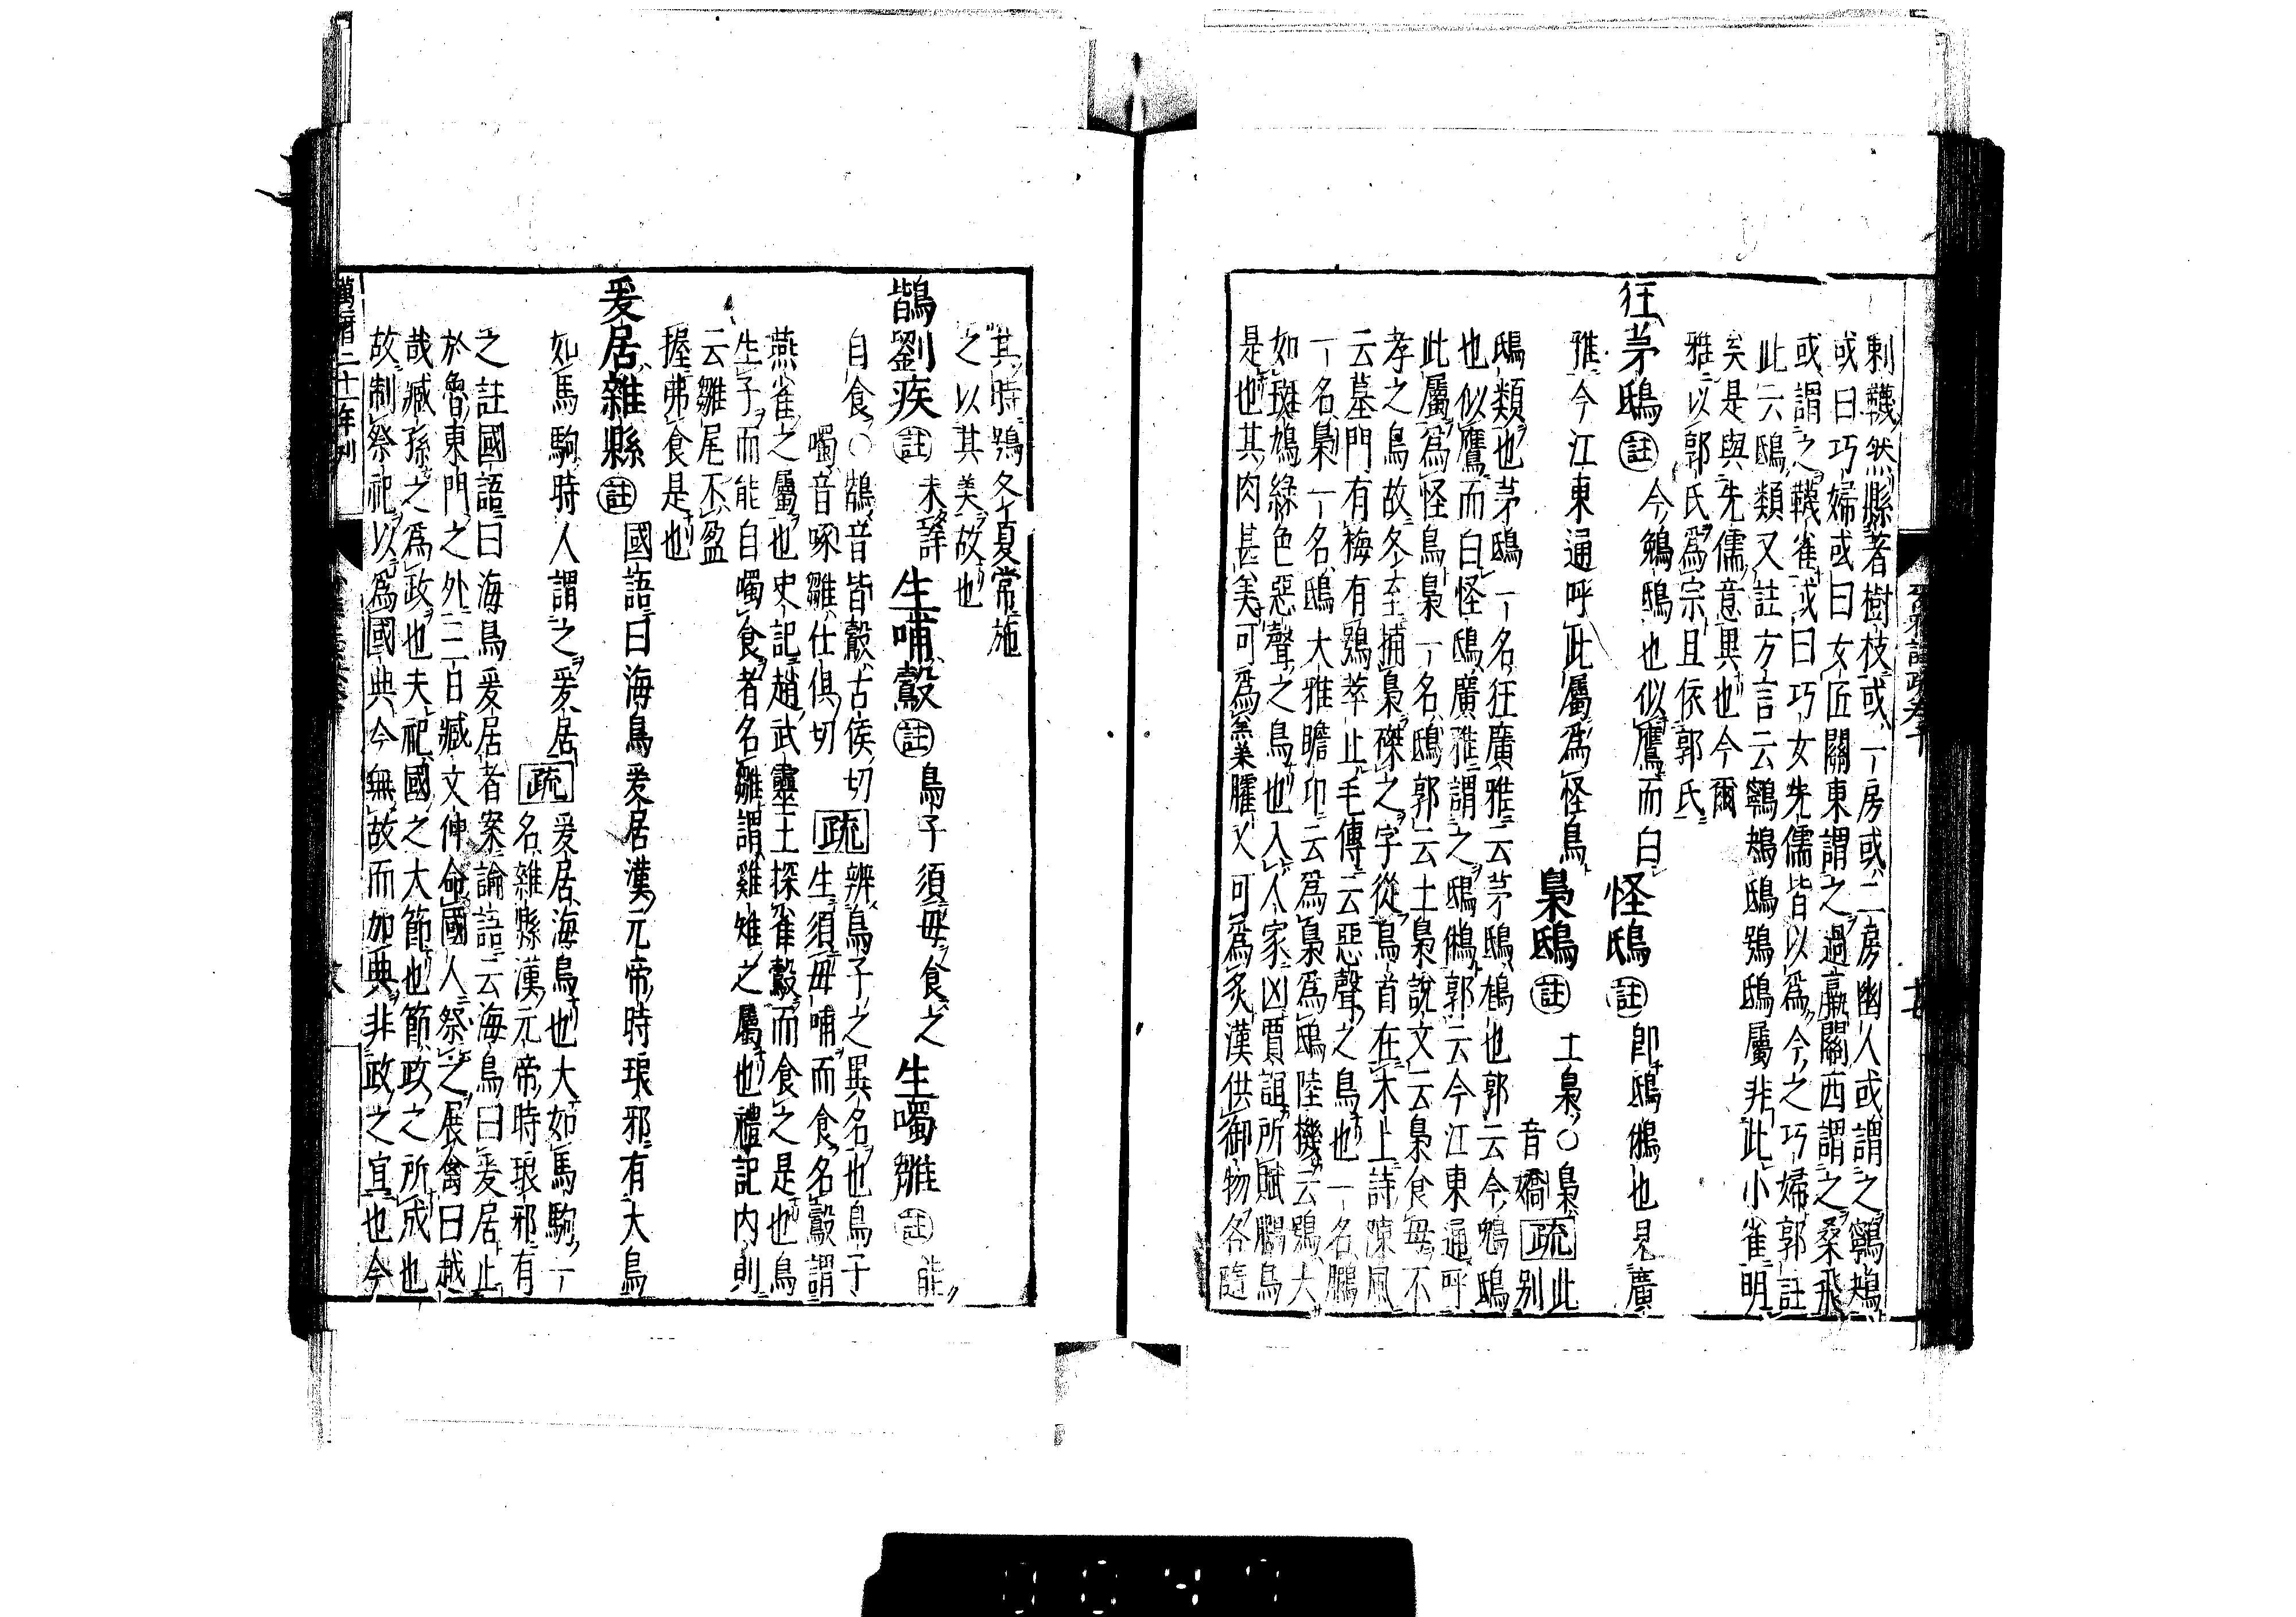 刺韈然縣著樹枝或一房或二房幽人或謂之鸋鴂
或曰巧婦或曰女匠關東謂之過蠃關西謂之桑飛
或謂之韈雀或曰巧女先儒皆以爲今之巧婦郭註
此云鴟類又註方言云鸋鴂鴟鴞鴟屬非此小雀明
矣是與先儒意異也今爾
雅以郭氏爲宗且依郭氏
狂茅鴟 註 今鵵鴟也似鷹而白 怪鴟 註 即鴟鵂也見廣
雅今江東通呼此屬爲怪鳥 梟鴟 註 土梟○梟
音嬌 疏 此別
鴟類也茅鴟一名狂廣雅云茅鴟鵂也郭云今鵵鴟
也似鷹而白怪鴟廣雅謂之鴟鵂郭云今江東通呼
此屬爲怪鳥梟一名鴟郭云土梟說文云梟食母不
孝之鳥故冬至捕梟磔之字從鳥首在木上詩陳風
云墓門有梅有鴞萃止毛傳云惡聲之鳥也一名鵩
一名梟一名鴟大雅瞻卬云爲梟爲鴟陸機云鴞大
如斑鳩綠色惡聲之鳥也入人家凶賈誼所賦鵩鳥
是也其肉甚美可爲羹臛又可爲炙漢供御物各隨
其時鴞冬夏常施
之以其美故也
鶛劉疾 註 未詳 生哺鷇 註 鳥子須母食之 生噣雛 註 能
自食○鶛音皆鷇古侯切
噣音啄雛仕俱切 疏 辨鳥子之異名也鳥子
生須母哺而食名鷇謂
燕雀之屬也史記趙武靈王探雀鷇而食之是也鳥
生子而能自噣食者名雛謂雞雉之屬也禮記內則
云雛尾不盈
握弗食是也
爰居雜縣 註 國語曰海鳥爰居漢元帝時琅邪有大鳥
如馬駒時人謂之爰居 疏 爰居海鳥也大如馬駒一
名雜縣漢元帝時琅邪有
之註國語曰海鳥爰居者案論語云海鳥曰爰居止
於魯東門之外三日臧文仲命國人祭之展禽曰越
哉臧孫之爲政也夫祀國之大節也節政之所成也
故制祭祀以爲國典今無故而加典非政之宜也今
萬曆二十一年刊